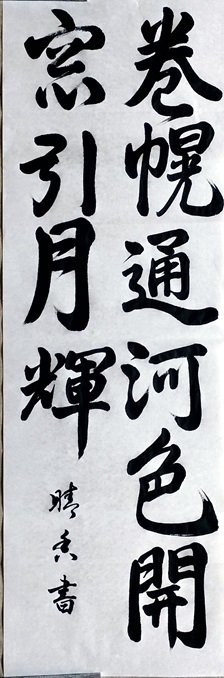 卷幌通河色開
窓引月輝
晴香書